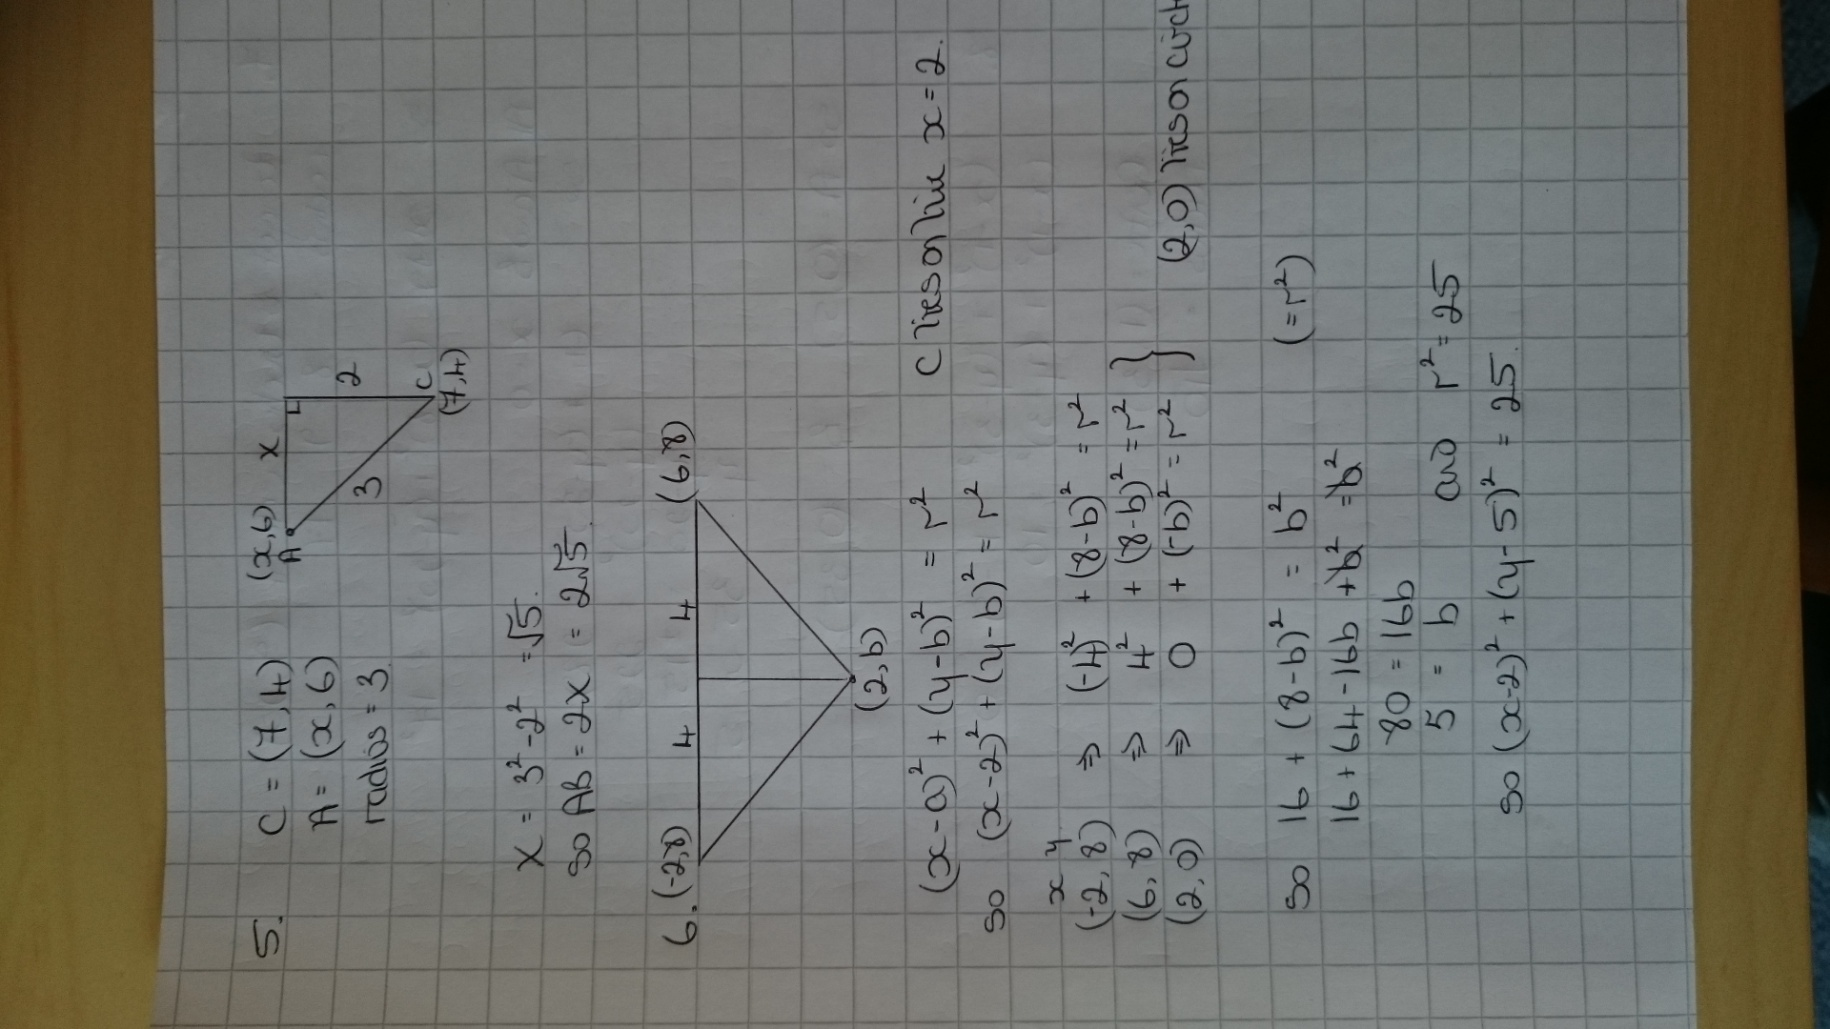 5. C = (7,4)
A = (x,6)
radius = 3
(x,6)
A
X
2
3
C
(7,4)
X = 3² - 2² = √5.
so AB = 2X = 2√5.
6. (-2,8) 4 4 (6,8)
(2,b)
C lies on line x = 2.
(x-a)² + (y-b)² = r²
so (x-2)² + (y-b)² = r²
x y
(-2,8) ⇒ (-4)² + (8-b)² = r²
(6,8) ⇒ 4² + (8-b)² = r² }
(2,0) ⇒ 0 + (-b)² = r² } (2,0) lies on circ
so 16 + (8-b)² = b² (= r²)
16 + 64 - 16b + b² = b²
80 = 16b
5 = b and r² = 25
so (x-2)² + (y-5)² = 25.